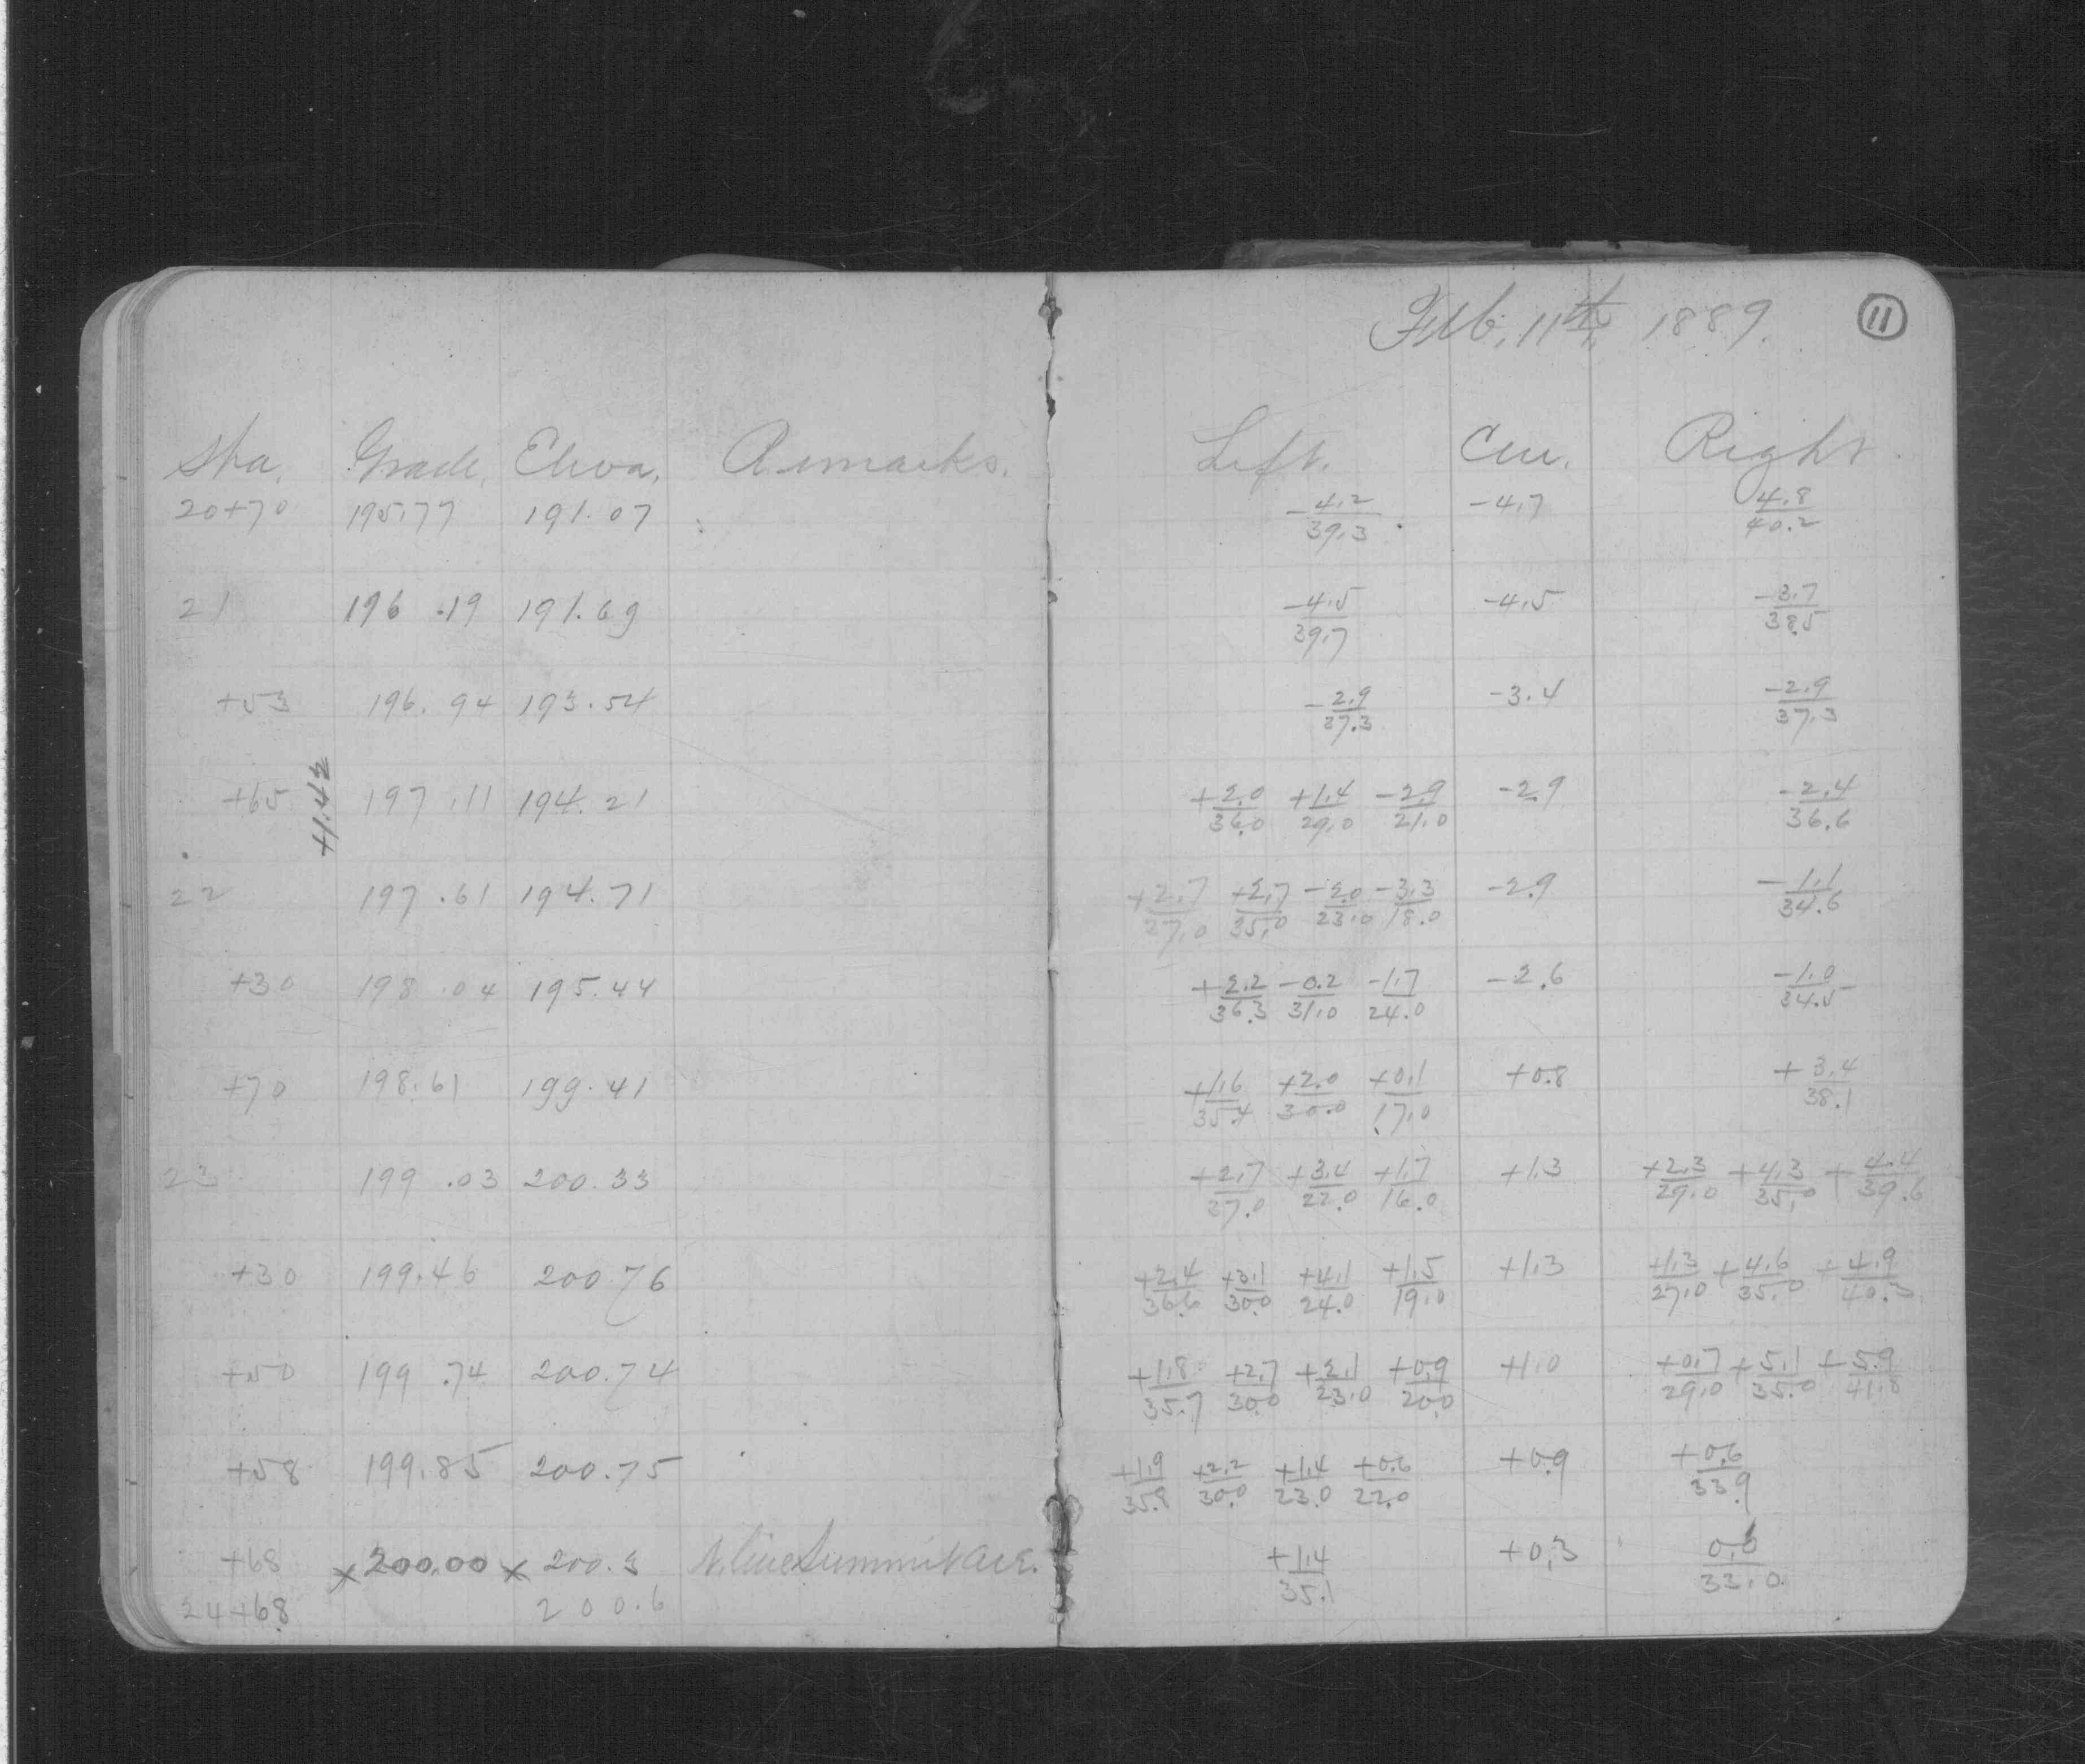 Feb. 11th, 1889. 11
Sta. Grade. Eleva. Remarks. Left. Cen. Right.
20+70 195.77 191.07 -4.2/39.3 -4.7 4.8/40.2
21 196.19 191.69 -4.5/39.7 -4.5 -3.7/38.5
+53 196.94 193.54 -2.9/37.3 -3.4 -2.9/37.3
+65 197.11 194.21 +2.0/36.0 +1.4/29.0 -2.9/21.0 -2.9 -2.4/36.6
+1.42
22 197.61 194.71 +2.7/27.0 +2.7/35.0 -2.0/23.0 -3.3/18.0 -2.9 -1.1/34.6
+30 198.04 195.44 +2.2/36.3 -0.2/31.0 -1.7/24.0 -2.6 -1.0/34.5
+70 198.61 199.41 +1.6/35.4 +2.0/30.0 +0.1/17.0 +0.8 +3.4/38.1
23 199.03 200.33 +2.7/37.0 +3.4/22.0 +1.7/16.0 +1.3 +2.3/29.0 +4.3/35.0 +4.4/39.6
+30 199.46 200.76 +2.4/36.6 +3.1/30.0 +4.1/24.0 +1.5/19.0 +1.3 +1.3/27.0 +4.6/35.0 +4.9/40.3
+50 199.74 200.74 +1.8/35.7 +2.7/30.0 +2.1/23.0 +0.9/20.0 +1.0 +0.7/29.0 +5.1/35.0 +5.9/41.8
+58 199.85 200.75 +1.9/35.8 +2.2/30.0 +1.4/23.0 +0.6/22.0 +0.9 +0.6/33.9
+68 x 200.00 x 200.3 N. line Summit Ave. +1.4/35.1 +0.3 0.0/33.0
24+68 200.6